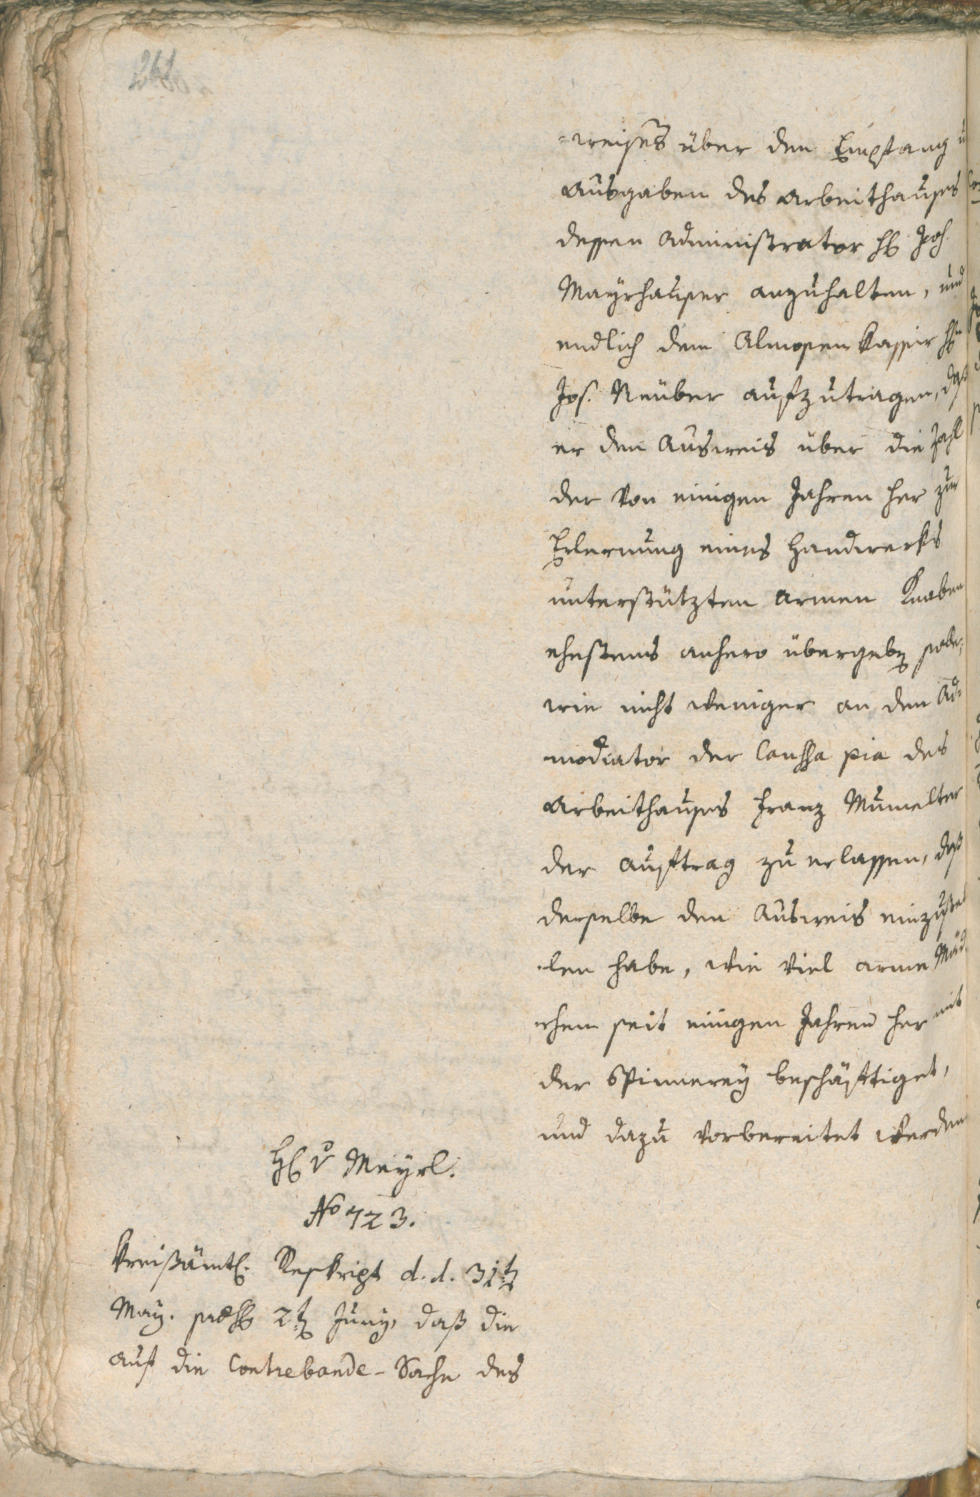 =weises über den Empfang u
Ausgaben des Arbeithauses
dessen Administrator H. Joh.
Mayrhauser anzuhalten, und
endlich dem Almosenkassir H
Jos. Neuber aufzutragen, daß
er den Ausweis über die Zahl
der von einigen Jahren her zur
Erlernung eines Handwerks
unterstützten armen Knaben
ehestens anhero übergeben solle,
wie nicht weniger an den Ad-
modiator der Caussa pia des
Arbeithauses Franz Mumelter
der Auftrag zu erlassen, daß
derselbe den Ausweis einzustel
len habe, wie viel arme Mäd
chen seit einigen Jahren her mit
der Spinnerey beschäftiget,
und dazu vorbereitet werden
H. v Meyrl.
No 723.
Kreisämtl. Reskript d. d. 31t
May. 2t Juny, daß die
auf die Contrebande-Sache des